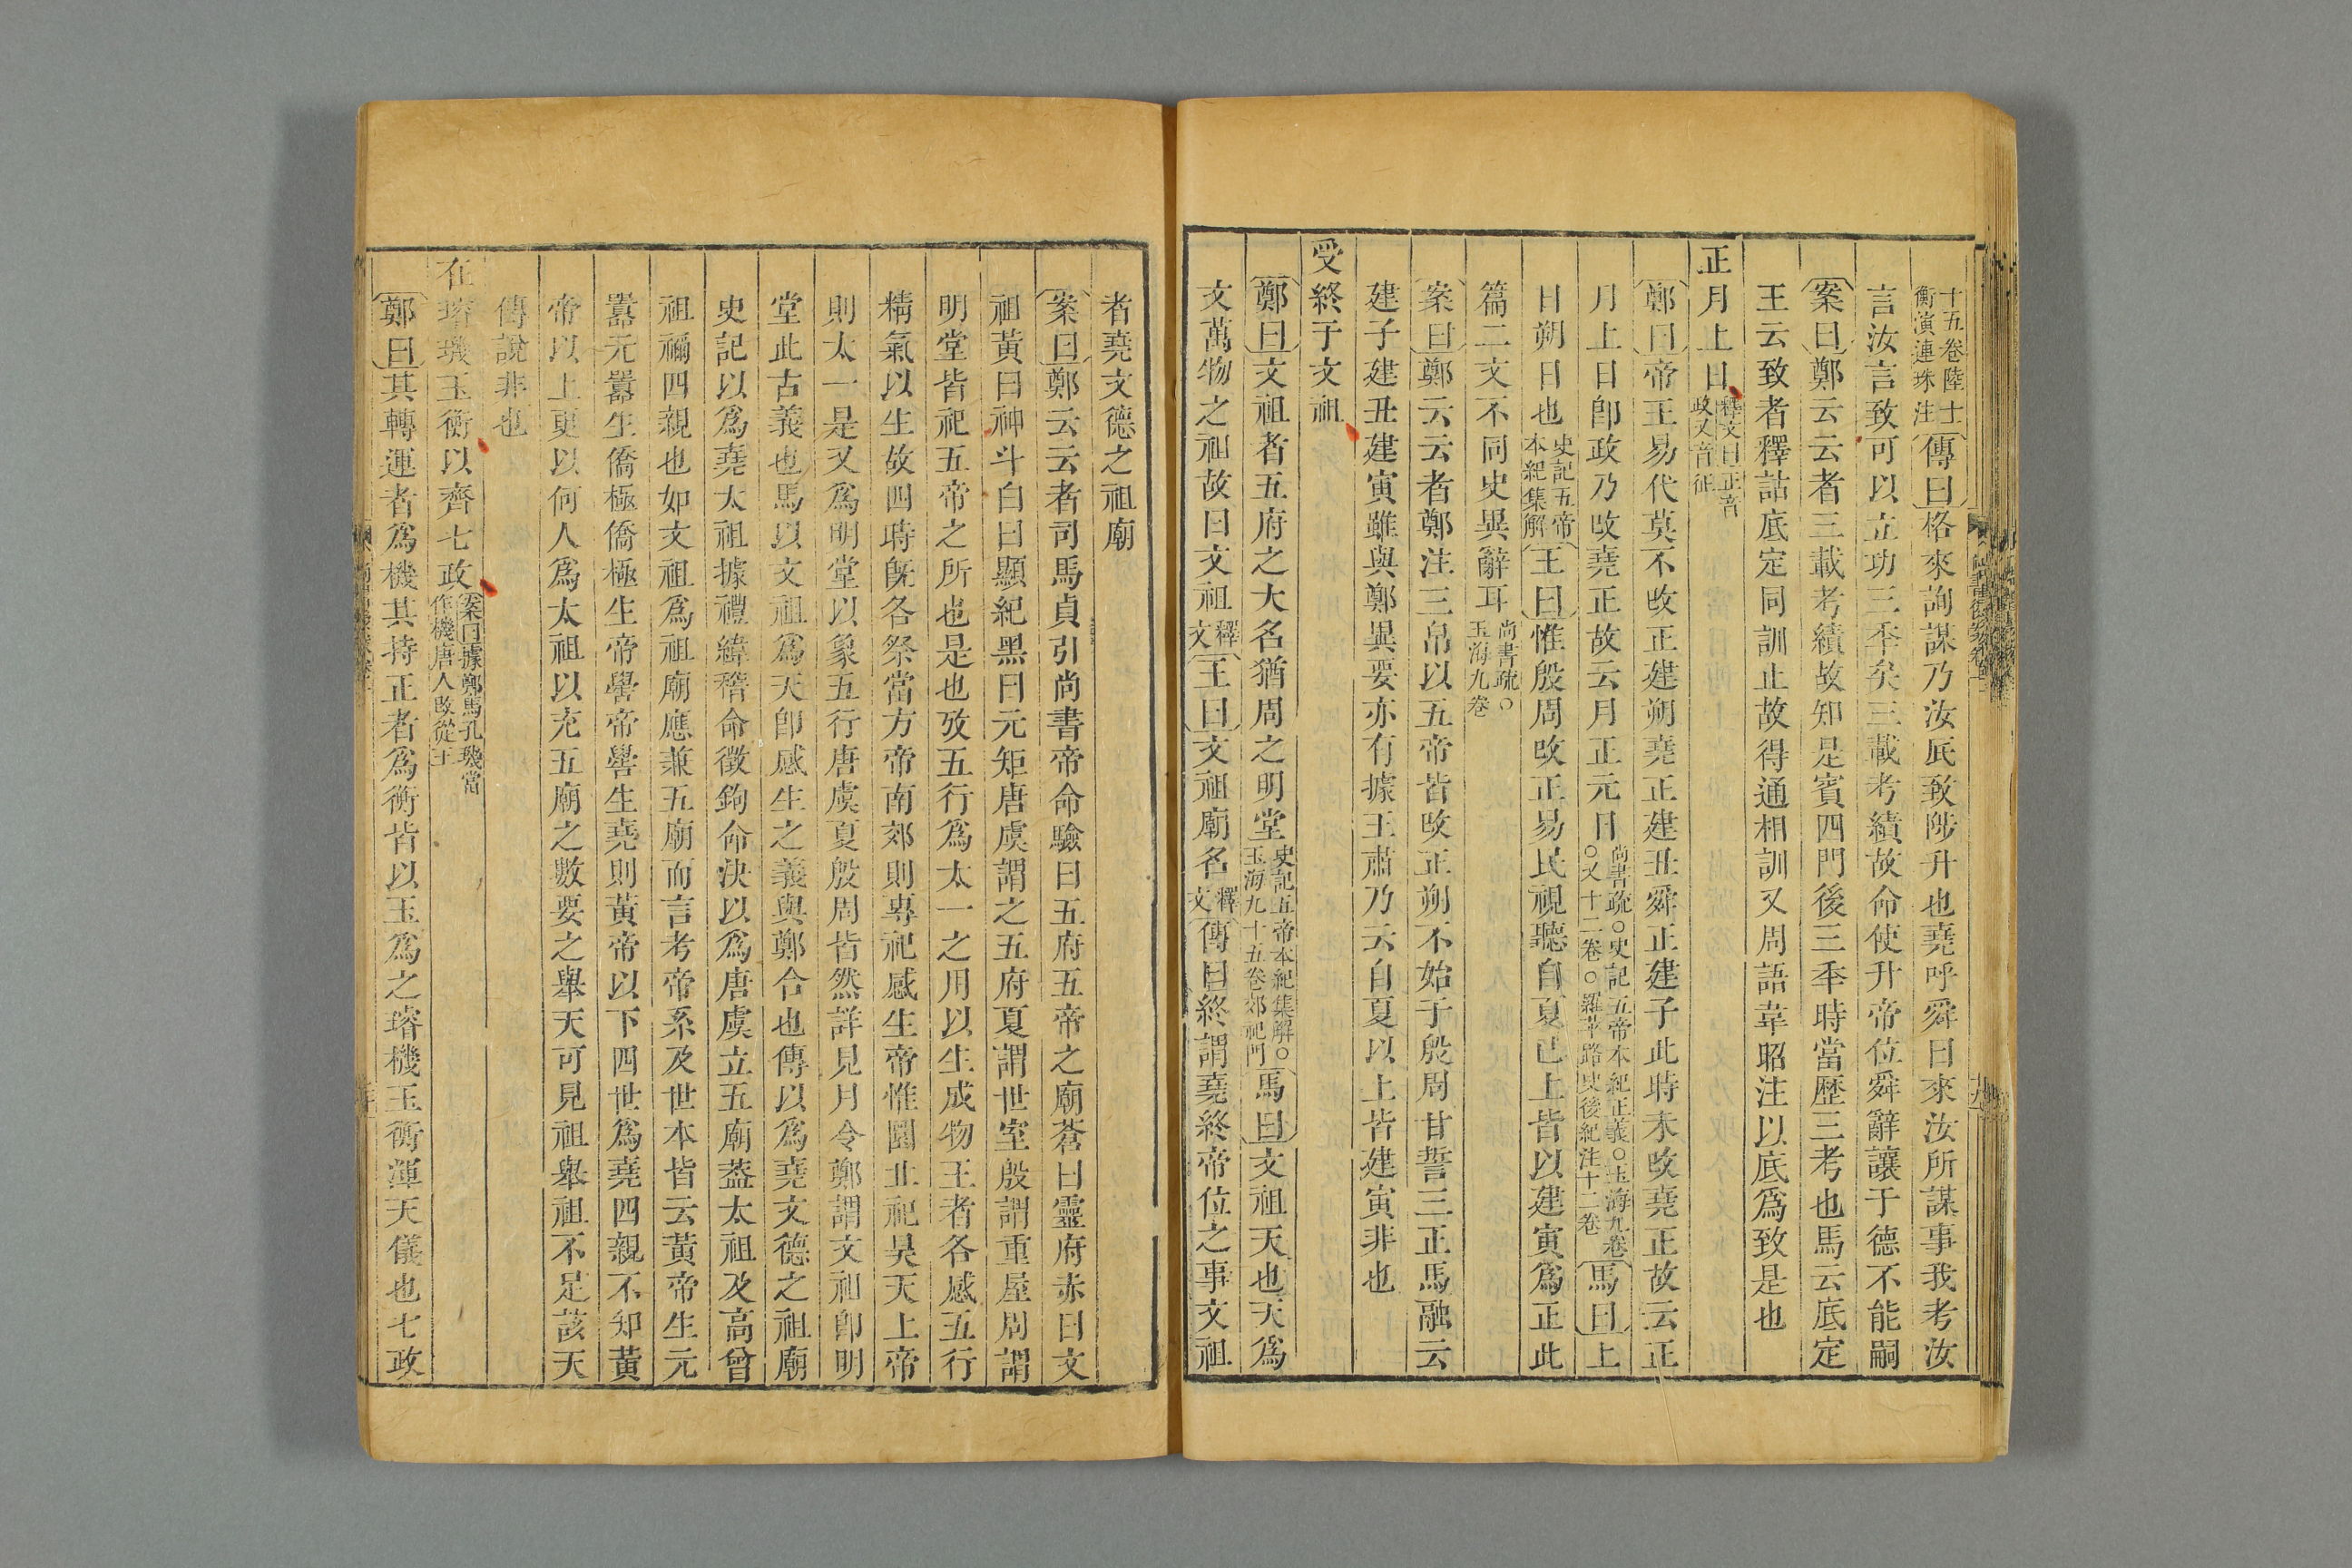 十五卷陸士衡演連珠注傳曰格來詢謀乃汝厎致陟升也堯呼舜曰來汝所謀事我考汝
言汝言致可以立功三秊矣三載考績故命使升帝位舜辭讓于德不能嗣
案曰鄭云云者三載考績故知是賓四門後三秊時當歷三考也馬云厎定
王云致者釋詁厎定同訓止故得通相訓又周語韋昭注以厎爲致是也
正月上日釋文曰正音政又音征
鄭曰帝王易代莫不改正建朔堯正建丑舜正建子此時未改堯正故云正
月上日卽政乃改堯正故云月正元日尚書疏○史記五帝本紀正義○玉海九卷○又十二卷○羅苹路史後紀注十二卷馬曰上
日朔日也史記五帝本紀集解王曰惟殷周改正易民視聽自夏已上皆以建寅爲正此
篇二文不同史異辭耳尚書疏○玉海九卷
案曰鄭云云者鄭注三帛以五帝皆改正朔不始于殷周甘誓三正馬融云
建子建丑建寅雖與鄭異要亦有據王肅乃云自夏以上皆建寅非也
受終于文祖
鄭曰文祖者五府之大名猶周之明堂史記五帝本紀集解○玉海九十五卷郊祀門馬曰文祖天也天爲
文萬物之祖故曰文祖釋文王曰文祖廟名釋文傳曰終謂堯終帝位之事文祖
者堯文德之祖廟
案曰鄭云云者司馬貞引尚書帝命驗曰五府五帝之廟蒼曰靈府赤曰文
祖黃曰神斗白曰顯紀黑曰元矩唐虞謂之五府夏謂世室殷謂重屋周謂
明堂皆祀五帝之所也是也攷五行爲太一之用以生成物王者各感五行
精氣以生故四時旣各祭當方帝南郊則專祀感生帝惟圜丘祀昊天上帝
則太一是又爲明堂以象五行唐虞夏殷周皆然詳見月令鄭謂文祖卽明
堂此古義也馬以文祖爲天卽感生之義與鄭合也傳以爲堯文德之祖廟
史記以爲堯太祖據禮緯稽命徵鉤命決以爲唐虞立五廟蓋太祖及高曾
祖禰四親也如文祖爲祖廟應兼五廟而言考帝系及世本皆云黃帝生元
囂元囂生僑極僑極生帝嚳帝嚳生堯則黃帝以下四世爲堯四親不知黃
帝以上更以何人爲太祖以充五廟之數要之舉天可見祖舉祖不足該天
傳說非也
在璿璣玉衡以齊七政案曰據鄭馬孔璣當作機唐人改從王
鄭曰其轉運者爲機其持正者爲衡皆以玉爲之璿機玉衡渾天儀也七政